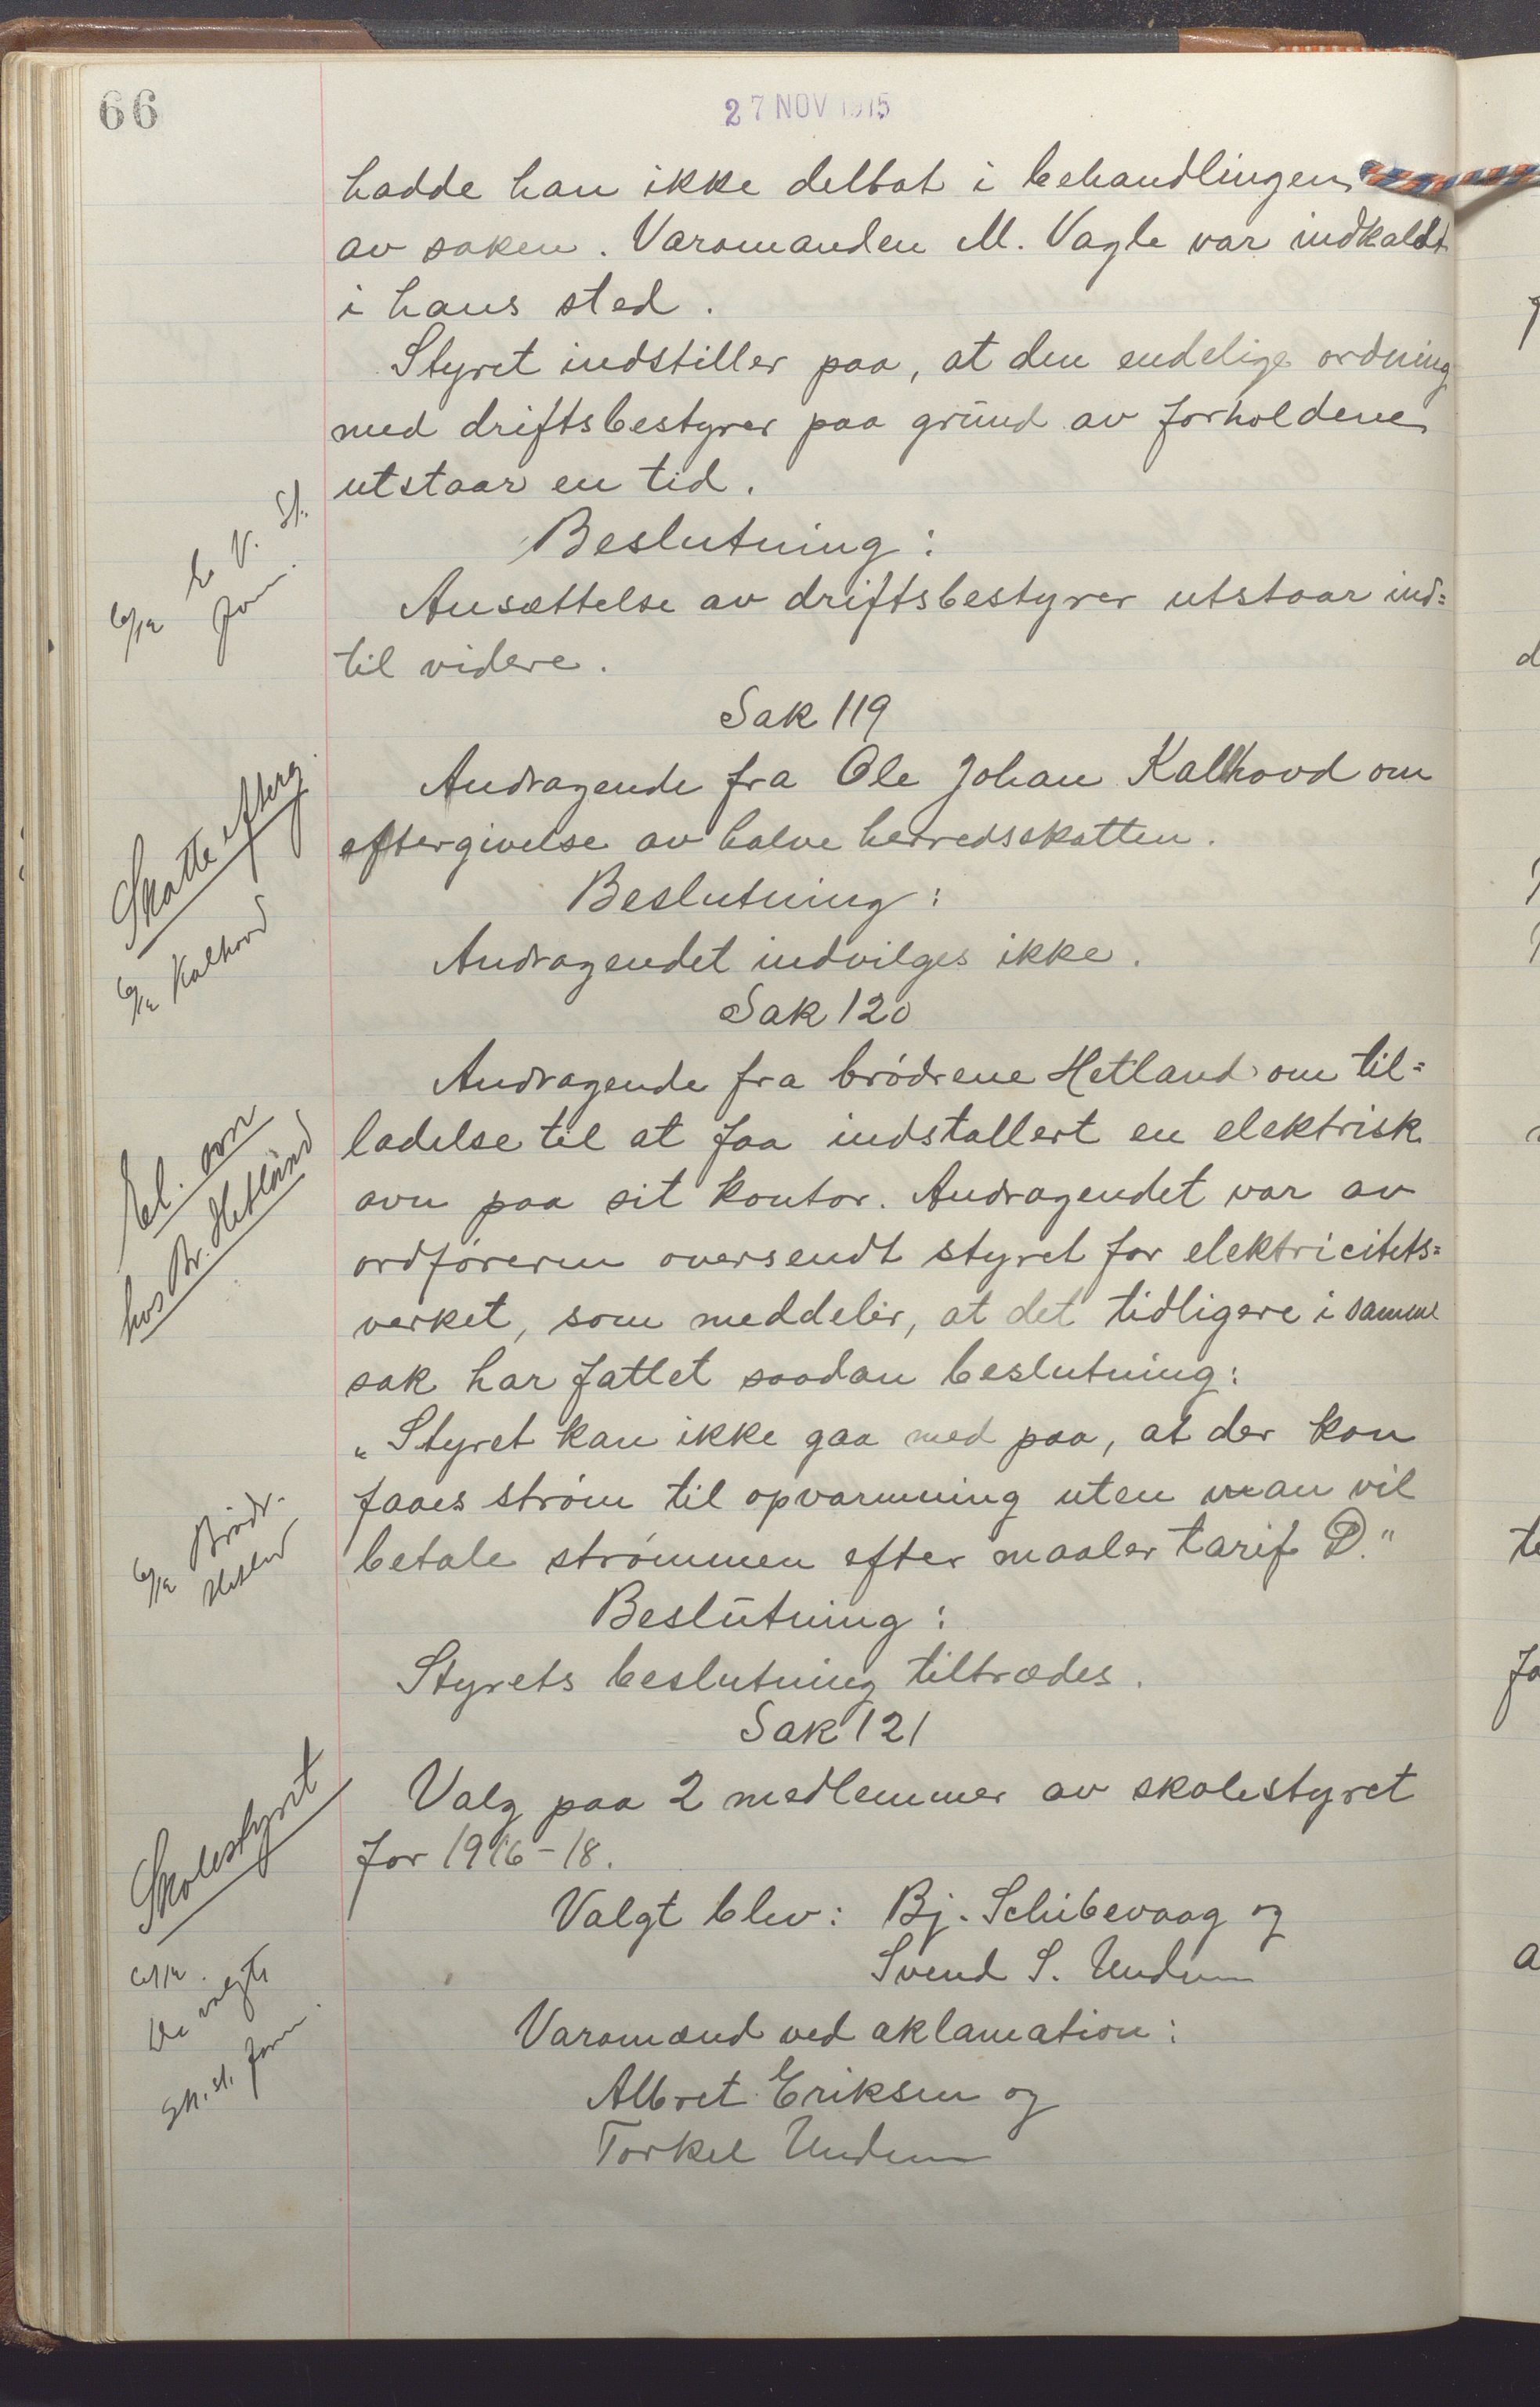 66
27 NOV 1915
hadde han ikke deltat i behandlingen
av saken. Varamanden M. Vagle var indkaldt
i hans sted.
Styret indstiller paa, at den endelige ordning
med driftsbestyrer paa grund av forholdene
utstaar en tid.
Beslutning:
6/12 E. V. St.
Form.
Ansættelse av driftsbestyrer utstaar ind=
til videre.
Sak 119
Skatteefterg.
6/12 Kalhovd
Andragende fra Ole Johan Kalhovd om
eftergivelse av halve herredsskatten.
Beslutning:
Andragendet indvilges ikke.
Sak 120
El. ovn
hos Br. Hetland
Andragende fra brødrene Hetland om til=
ladelse til at faa indstallert en elektrisk
ovn paa sit kontor. Andragendet var av
ordføreren oversendt styret for elektricitets=
verket, som meddeler, at det tidligere i samme
sak har fattet saadan beslutning:
"Styret kan ikke gaa med paa, at der kan
faaes strøm til opvarmning uten man vil
betale strømmen efter maaler tarif D."
6/12 Brødr.
Hetland
Beslutning:
Styrets beslutning tiltrædes.
Sak 121
Skolestyret
Valg paa 2 medlemmer av skolestyret
for 1916-18.
Valgt blev: Bj. Schibevaag og
Svend S. Undem
6/12.
De valgte
Sk. st. form.
Varamænd ved aklamation:
Albret Eriksen og
Torkel Undem